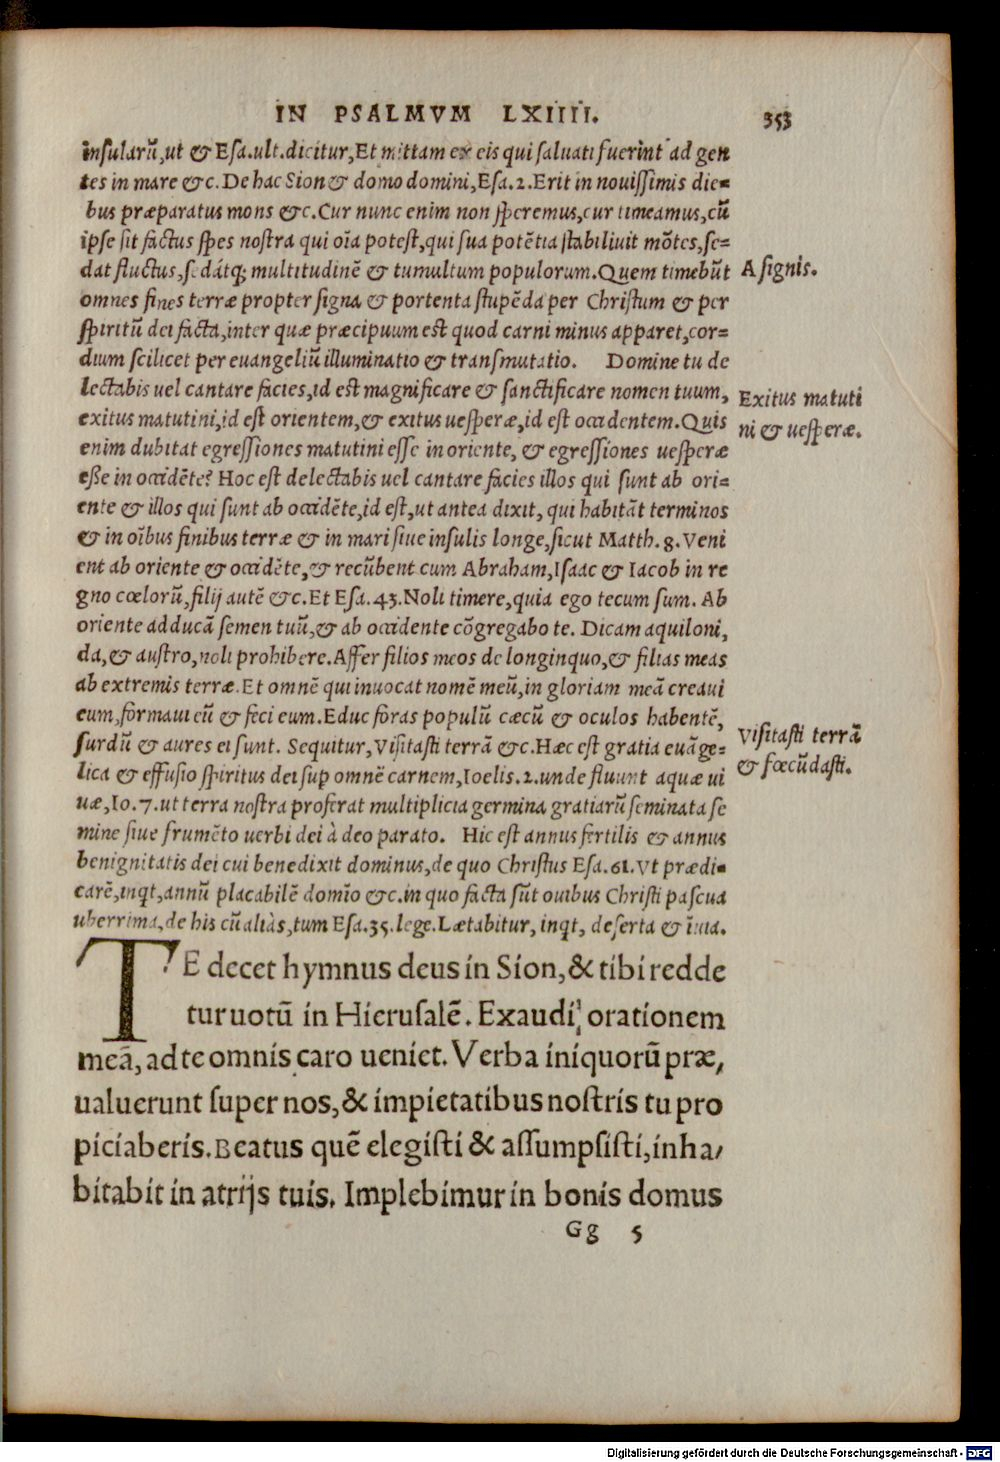 IN PSALMVM LXIIII. 353
insularū, ut & Esa.ult.dicitur, Et mittam ex eis qui saluati fuerint ad gen
tes in mare &c. De hac Sion & domo domini, Esa.2. Erit in nouissimis die=
bus præparatus mons &c. Cur nunc enim non speremus, cur timeamus, cū
ipse sit factus spes nostra qui oīa potest, qui sua potētia stabiliuit mōtes, se=
dat fluctus, sedátq; multitudinē & tumultum populorum. Quem timebūt
A signis.
omnes fines terræ propter signa & portenta stupēda per Christum & per
spiritū dei facta, inter quæ præcipuum est quod carni minus apparet, cor=
dium scilicet per euangeliū illuminatio & transmutatio. Domine tu de
lectabis uel cantare facies, id est magnificare & sanctificare nomen tuum,
Exitus matuti
exitus matutini, id est orientem, & exitus uesperæ, id est occidentem. Quis
ni & uesperæ.
enim dubitat egressiones matutini esse in oriente, & egressiones uesperæ
esse in occidēte? Hoc est delectabis uel cantare facies illos qui sunt ab ori=
ente & illos qui sunt ab occidēte, id est, ut antea dixit, qui habitāt terminos
& in oībus finibus terræ & in mari siue insulis longe, sicut Matth.8. Veni
ent ab oriente & occidēte, & recūbent cum Abraham, Isaac & Iacob in re
gno cœlorū, filij autē &c. Et Esa.43. Noli timere, quia ego tecum sum. Ab
oriente adducā semen tuū, & ab occidente cōgregabo te. Dicam aquiloni,
da, & austro, noli prohibere. Affer filios meos de longinquo, & filias meas
ab extremis terræ. Et omnē qui inuocat nomē meū, in gloriam meā creaui
eum, formaui eū & feci eum. Educ foras populū cæcū & oculos habentē,
surdū & aures ei sunt. Sequitur, Visitasti terrā &c. Hæc est gratia euāge=
Visitasti terrā
lica & effusio spiritus dei sup omnē carnem, Ioelis.2. unde fluunt aquæ ui
& fœcūdasti.
uæ, Io.7. ut terra nostra proferat multiplicia germina gratiarū seminata se
mine siue frumēto uerbi dei à deo parato. Hic est annus fertilis & annus
benignitatis dei cui benedixit dominus, de quo Christus Esa.61. Vt prædi=
carē, inqt, annū placabilē domīo &c. in quo facta sūt ouibus Christi pascua
uberrima, de his cū aliàs, tum Esa.35. lege. Lætabitur, inqt, deserta & īuia.
TE decet hymnus deus in Sion, & tibi redde
tur uotū in Hierusalē. Exaudi orationem
meā, ad te omnis caro ueniet. Verba iniquorū præ,
ualuerunt super nos, & impietatibus nostris tu pro
piciaberis. Beatus quē elegisti & assumpsisti, inha,
bitabit in atrijs tuis. Implebimur in bonis domus
Gg 5
Digitalisierung gefördert durch die Deutsche Forschungsgemeinschaft - DFG